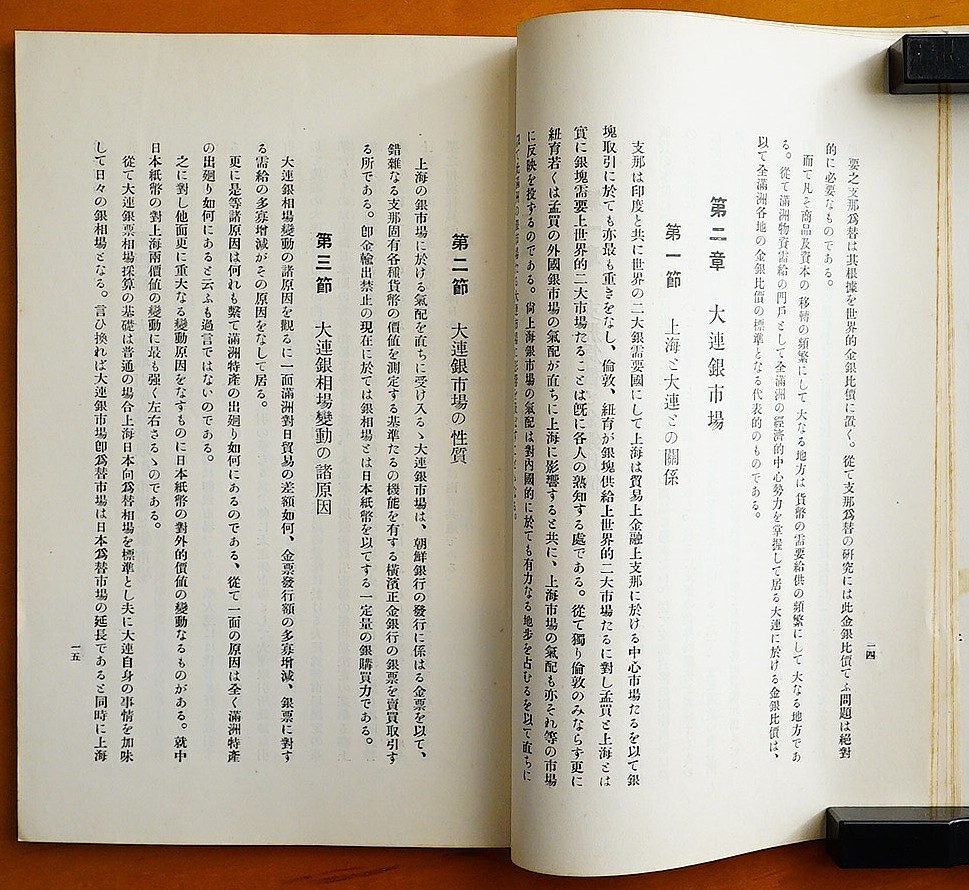 要之支那爲替は其根據を世界的金銀比價に置く。從て支那爲替の硏究には此金銀比價てふ問題は絕對
的に必要なものである。
而て凡そ商品及資本の移轉の頻繁にして大なる地方は貨幣の需要給供の頻繁にして大なる地方であ
る。從て滿洲物資需給の門戶として全滿洲の經濟的中心勢力を掌握して居る大連に於ける金銀比價は、
以て全滿洲各地の金銀比價の標準となる代表的のものである。
第二章　大連銀市場
第一節　上海と大連との關係
支那は印度と共に世界の二大銀需要國にして上海は貿易上金融上支那に於ける中心市場たるを以て銀
塊取引に於ても亦最も重きをなし、倫敦、紐育が銀塊供給上世界的二大市場たるに對し孟買と上海とは
實に銀塊需要上世界的二大市場たることは旣に各人の熟知する處である。從て獨り倫敦のみならす更に
紐育若くは孟買の外國銀市場の氣配が直ちに上海に影響すると共に、上海市場の氣配も亦それ等の市場
に反映を投するのである。尙上海銀市場の氣配は對內國的に於ても有力なる地步を占むるを以て直ちに
一四
第二節　大連銀市場の性質
上海の銀市場に於ける氣配を直ちに受け入るゝ大連銀市場は、朝鮮銀行の發行に係はる金票を以て、
錯雜なる支那固有各種貨幣の價値を測定する基準たるの機能を有する橫濱正金銀行の銀票を賣買取引す
る所である。卽金輸出禁止の現在に於ては銀相場とは日本紙幣を以てする一定量の銀購買力である。
第三節　大連銀相場變動の諸原因
大連銀相場變動の諸原因を觀るに一面滿洲對日貿易の差額如何、金票發行額の多寡增減、銀票に對す
る需給の多寡增減がその原因をなして居る。
更に是等諸原因は何れも繫て滿洲特產の出廻り如何にあるのである、從て一面の原因は全く滿洲特產
の出廻り如何にあると云ふも過言ではないのである。
之に對し他面更に重大なる變動原因をなすものに日本紙幣の對外的價値の變動なるものがある。就中
日本紙幣の對上海兩價値の變動に最も强く左右さるゝのである。
從て大連銀票相場採算の基礎は普通の場合上海日本向爲替相場を標準とし夫に大連自身の事情を加味
して日々の銀相場となる。言ひ換れば大連銀市場卽爲替市場は日本爲替市場の延長であると同時に上海
一五